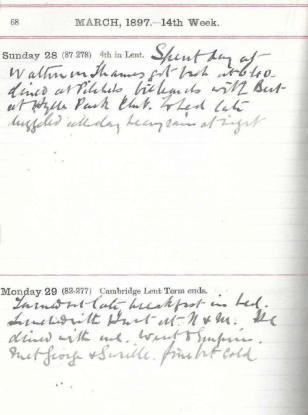 68
MARCH, 1897.—14th Week.
Sunday 28 (87-278) 4th in Lent. Spent day at
Walton on Thames got back at 6.40
dined at billiards with Bert
at Hyde Park Club. To bed late
all day heavy rain at night
Monday 29 (82-277) Cambridge Lent Term ends.
Turned out late breakfast in bed.
Lunched with at N & M. He
dined with me. Went Empire.
Met George & Saville. fine but cold